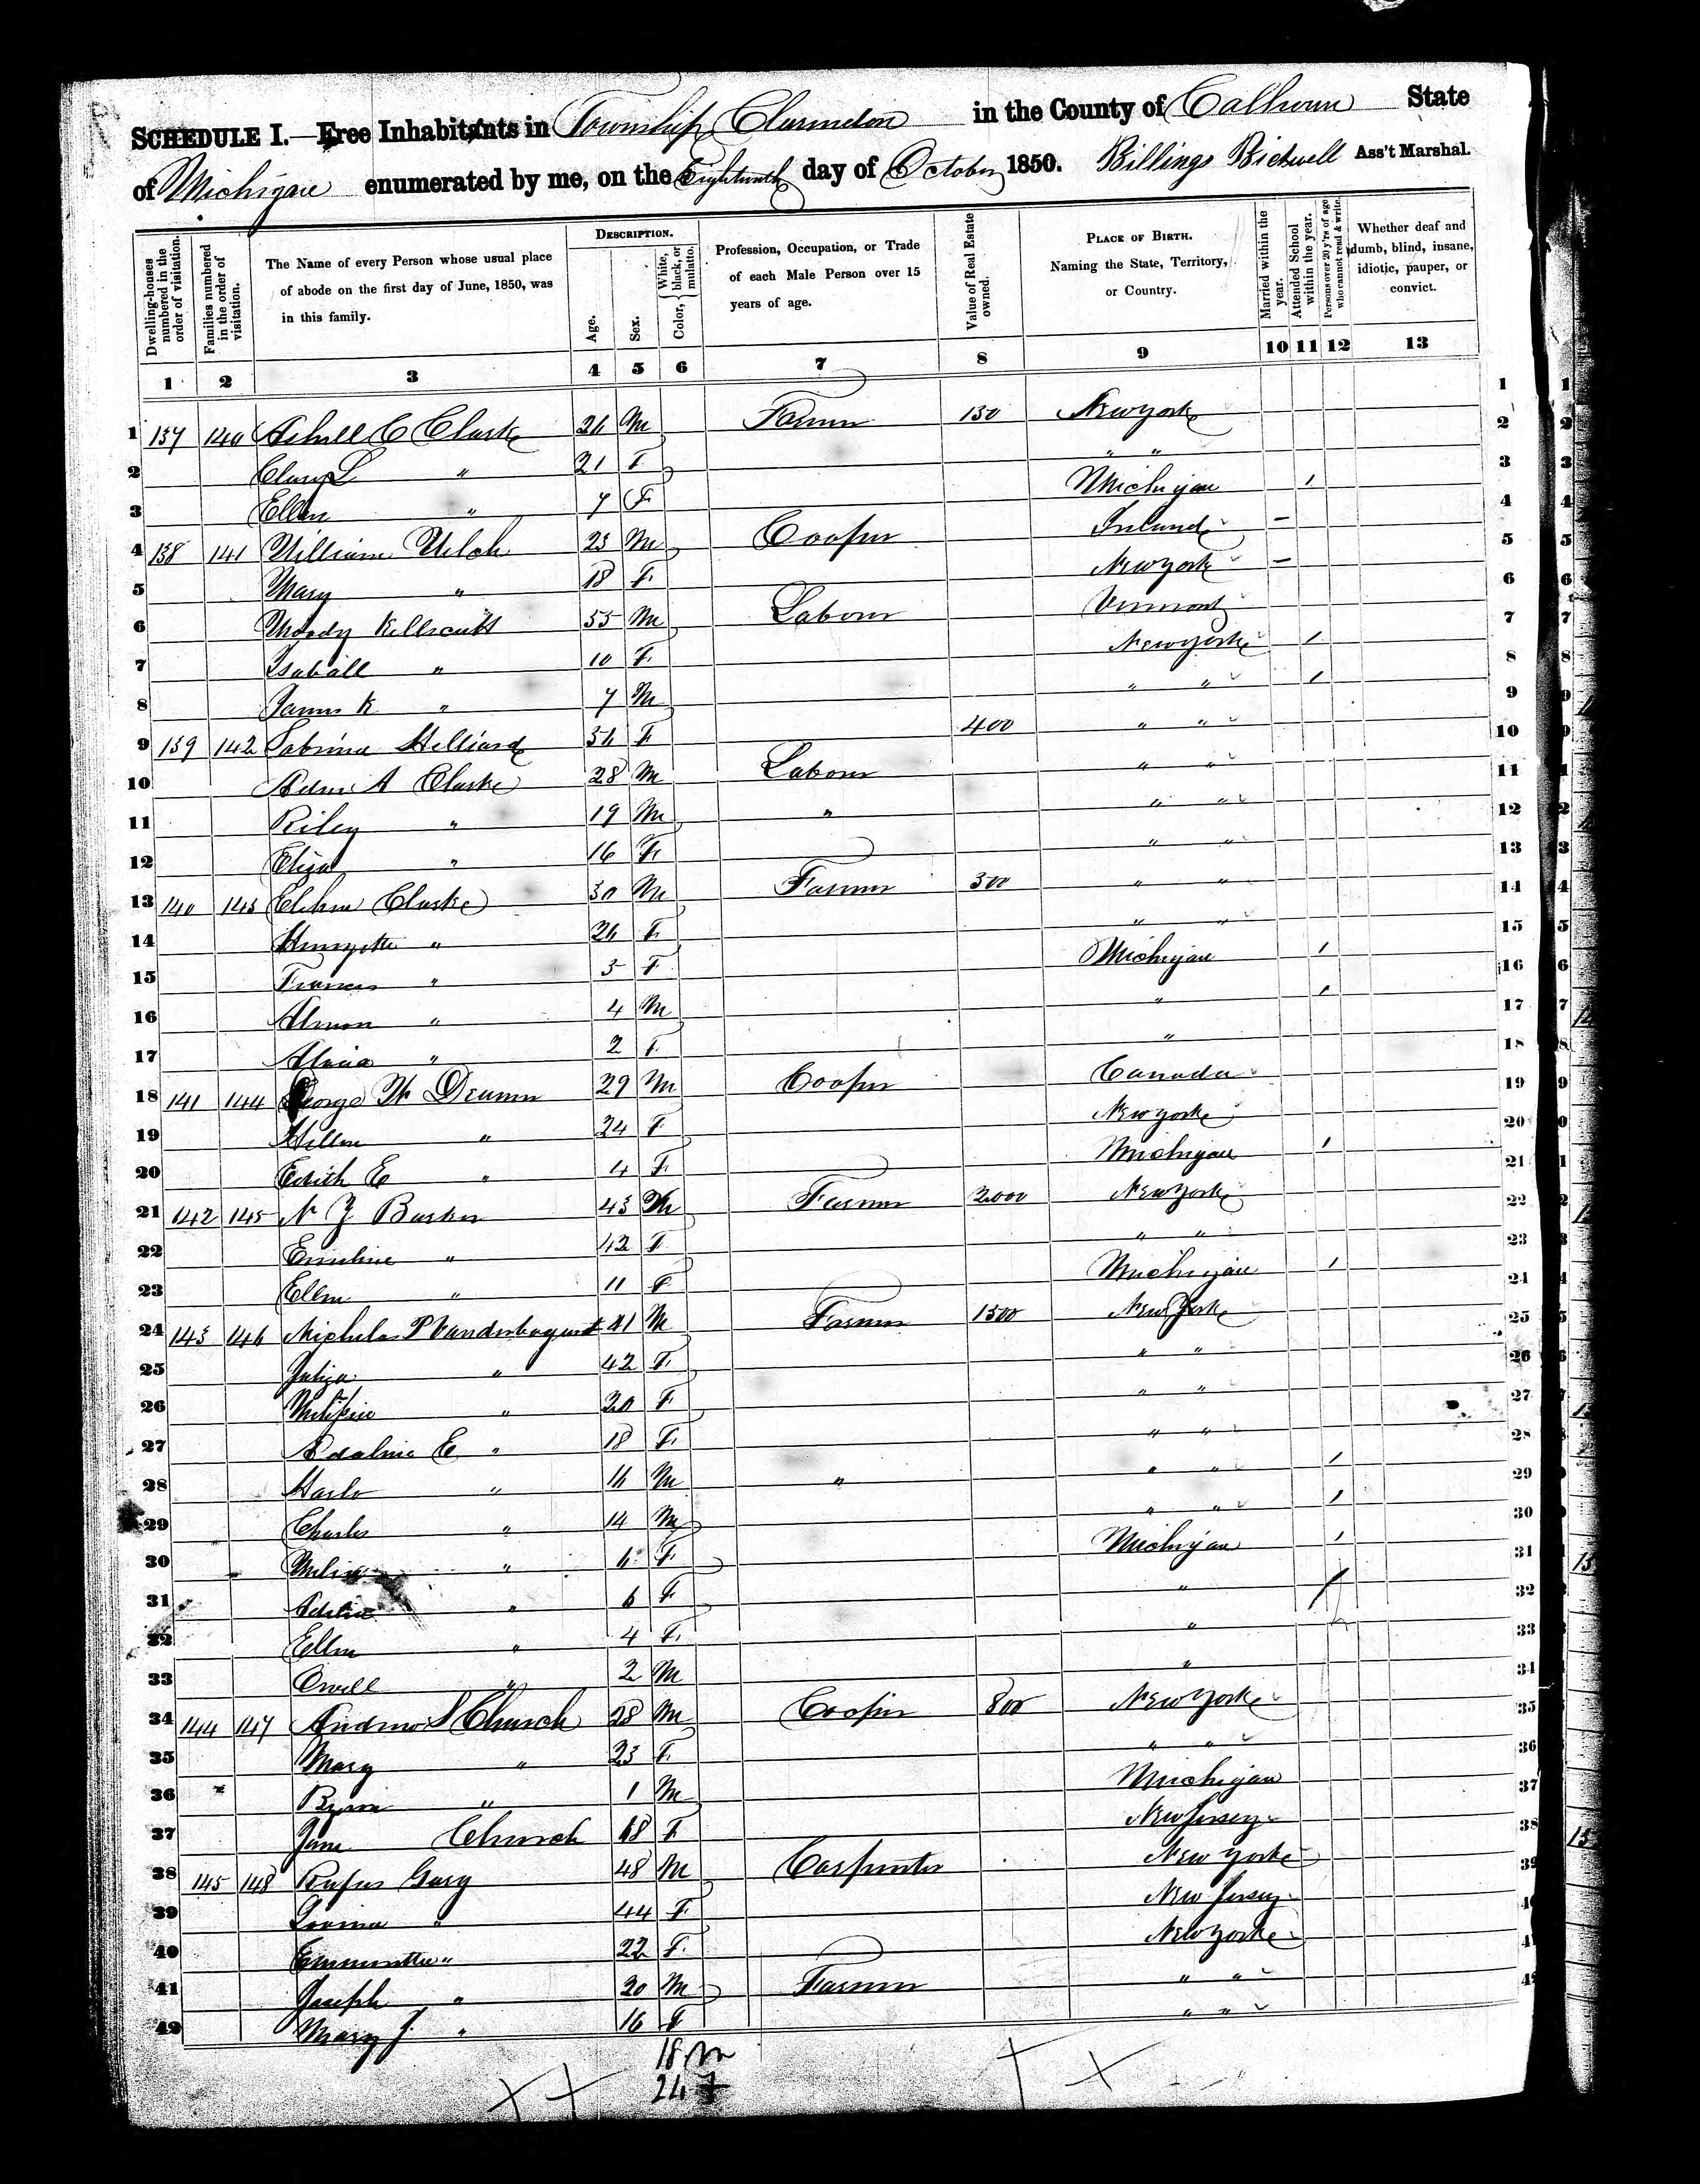 SCHEDULE I.—Free Inhabitants in Township Clarendon in the County of Calhoun State
of Michigan enumerated by me, on the Eighteenth day of October 1850. Billings Bidwell Ass't Marshal.
Dwelling-houses numbered in the order of visitation.
Families numbered in the order of visitation.
The Name of every Person whose usual place of abode on the first day of June, 1850, was in this family.
DESCRIPTION.
Age.
Sex.
Color, { White, black, or mulatto.
Profession, Occupation, or Trade of each Male Person over 15 years of age.
Value of Real Estate owned.
PLACE OF BIRTH. Naming the State, Territory, or Country.
Married within the year.
Attended School within the year.
Persons over 20 y'rs of age who cannot read & write.
Whether deaf and dumb, blind, insane, idiotic, pauper, or convict.
1 2 3 4 5 6 7 8 9 10 11 12 13
1 137 140 C Clarke 26 M Farmer 150 New York 1
2 L " 21 F " " 2
3 Ellen " 7 F Michigan 1 3
4 138 141 William Welch 23 M Cooper Ireland – 4
5 Mary " 18 F New York – 5
6 Moody 55 M Labour Vermont 6
7 Isabell " 10 F New York 1 7
8 James K " 7 M " " 1 8
9 139 142 Sabrina Hilliard 56 F 400 " " 9
10 A Clarke 28 M Labour " " 10
11 Riley " 19 M " " " 11
12 Eliza " 16 F " " 12
13 140 143 Elihu Clarke 30 M Farmer 300 " " 13
14 " 26 F " " 14
15 Frances " 5 F Michigan 1 15
16 Almon " 4 M " 1 16
17 " 2 F " 17
18 141 144 George W 29 M Cooper Canada 18
19 Hellen " 24 F New York 19
20 Edith E " 4 F Michigan 1 20
21 142 145 Barker 43 M Farmer 2000 New York 21
22 Emeline " 42 F " " 22
23 Ellen " 11 F Michigan 1 23
24 143 146 Nicholas P Vanderbogart 41 M Farmer 1500 New York 24
25 Juliza " 42 F " " 25
26 " 20 F " " 26
27 Adaline E " 18 F " " 27
28 " 16 M " " " 1 28
29 Charles " 14 M " " 1 29
30 " 6 F Michigan 1 30
31 " 6 F " 1 31
32 Ellen " 4 F " 32
33 Orvell " 2 M " 33
34 144 147 Andrew S Church 28 M Cooper 800 New York 34
35 Mary " 23 F " " 35
36 Byron " 1 M Michigan 36
37 Jane Church 18 F New Jersey 37
38 145 148 Rufus Gary 48 M Carpenter New York 38
39 Lovina " 44 F New Jersey 39
40 " 22 F New York
41 Joseph " 20 M Farmer " "
42 Mary J. " 16 F " "
18 m
24 f